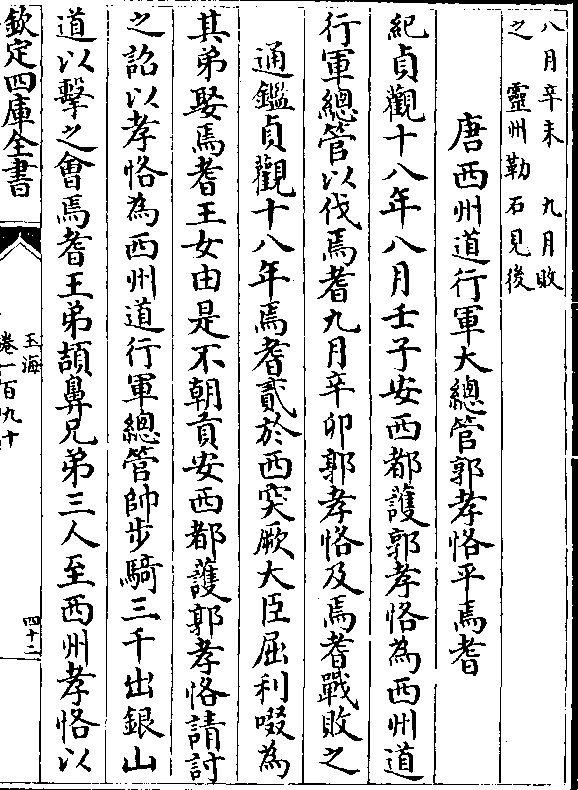 八月辛未　九月敗
之　靈州勒石見後
唐西州道行軍大總管郭孝恪平焉耆
紀貞觀十八年八月壬子安西都護郭孝恪為西州道
行軍總管以伐焉耆九月辛卯郭孝恪及焉耆戰敗之
通鑑貞觀十八年焉耆貳於西突厥大臣屈利啜為
其弟娶焉耆王女由是不朝貢安西都護郭孝恪請討
之詔以孝恪為西州道行軍總管帥步騎三千出銀山
道以擊之會焉耆王弟頡鼻兄弟三人至西州孝恪以
欽定四庫全書
玉海
卷一百九十
四十二